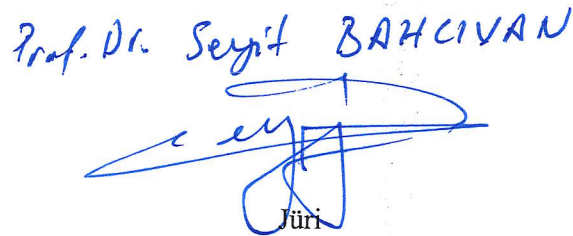 Prof. Dr. Seyit BAHCIVAN
Jüri